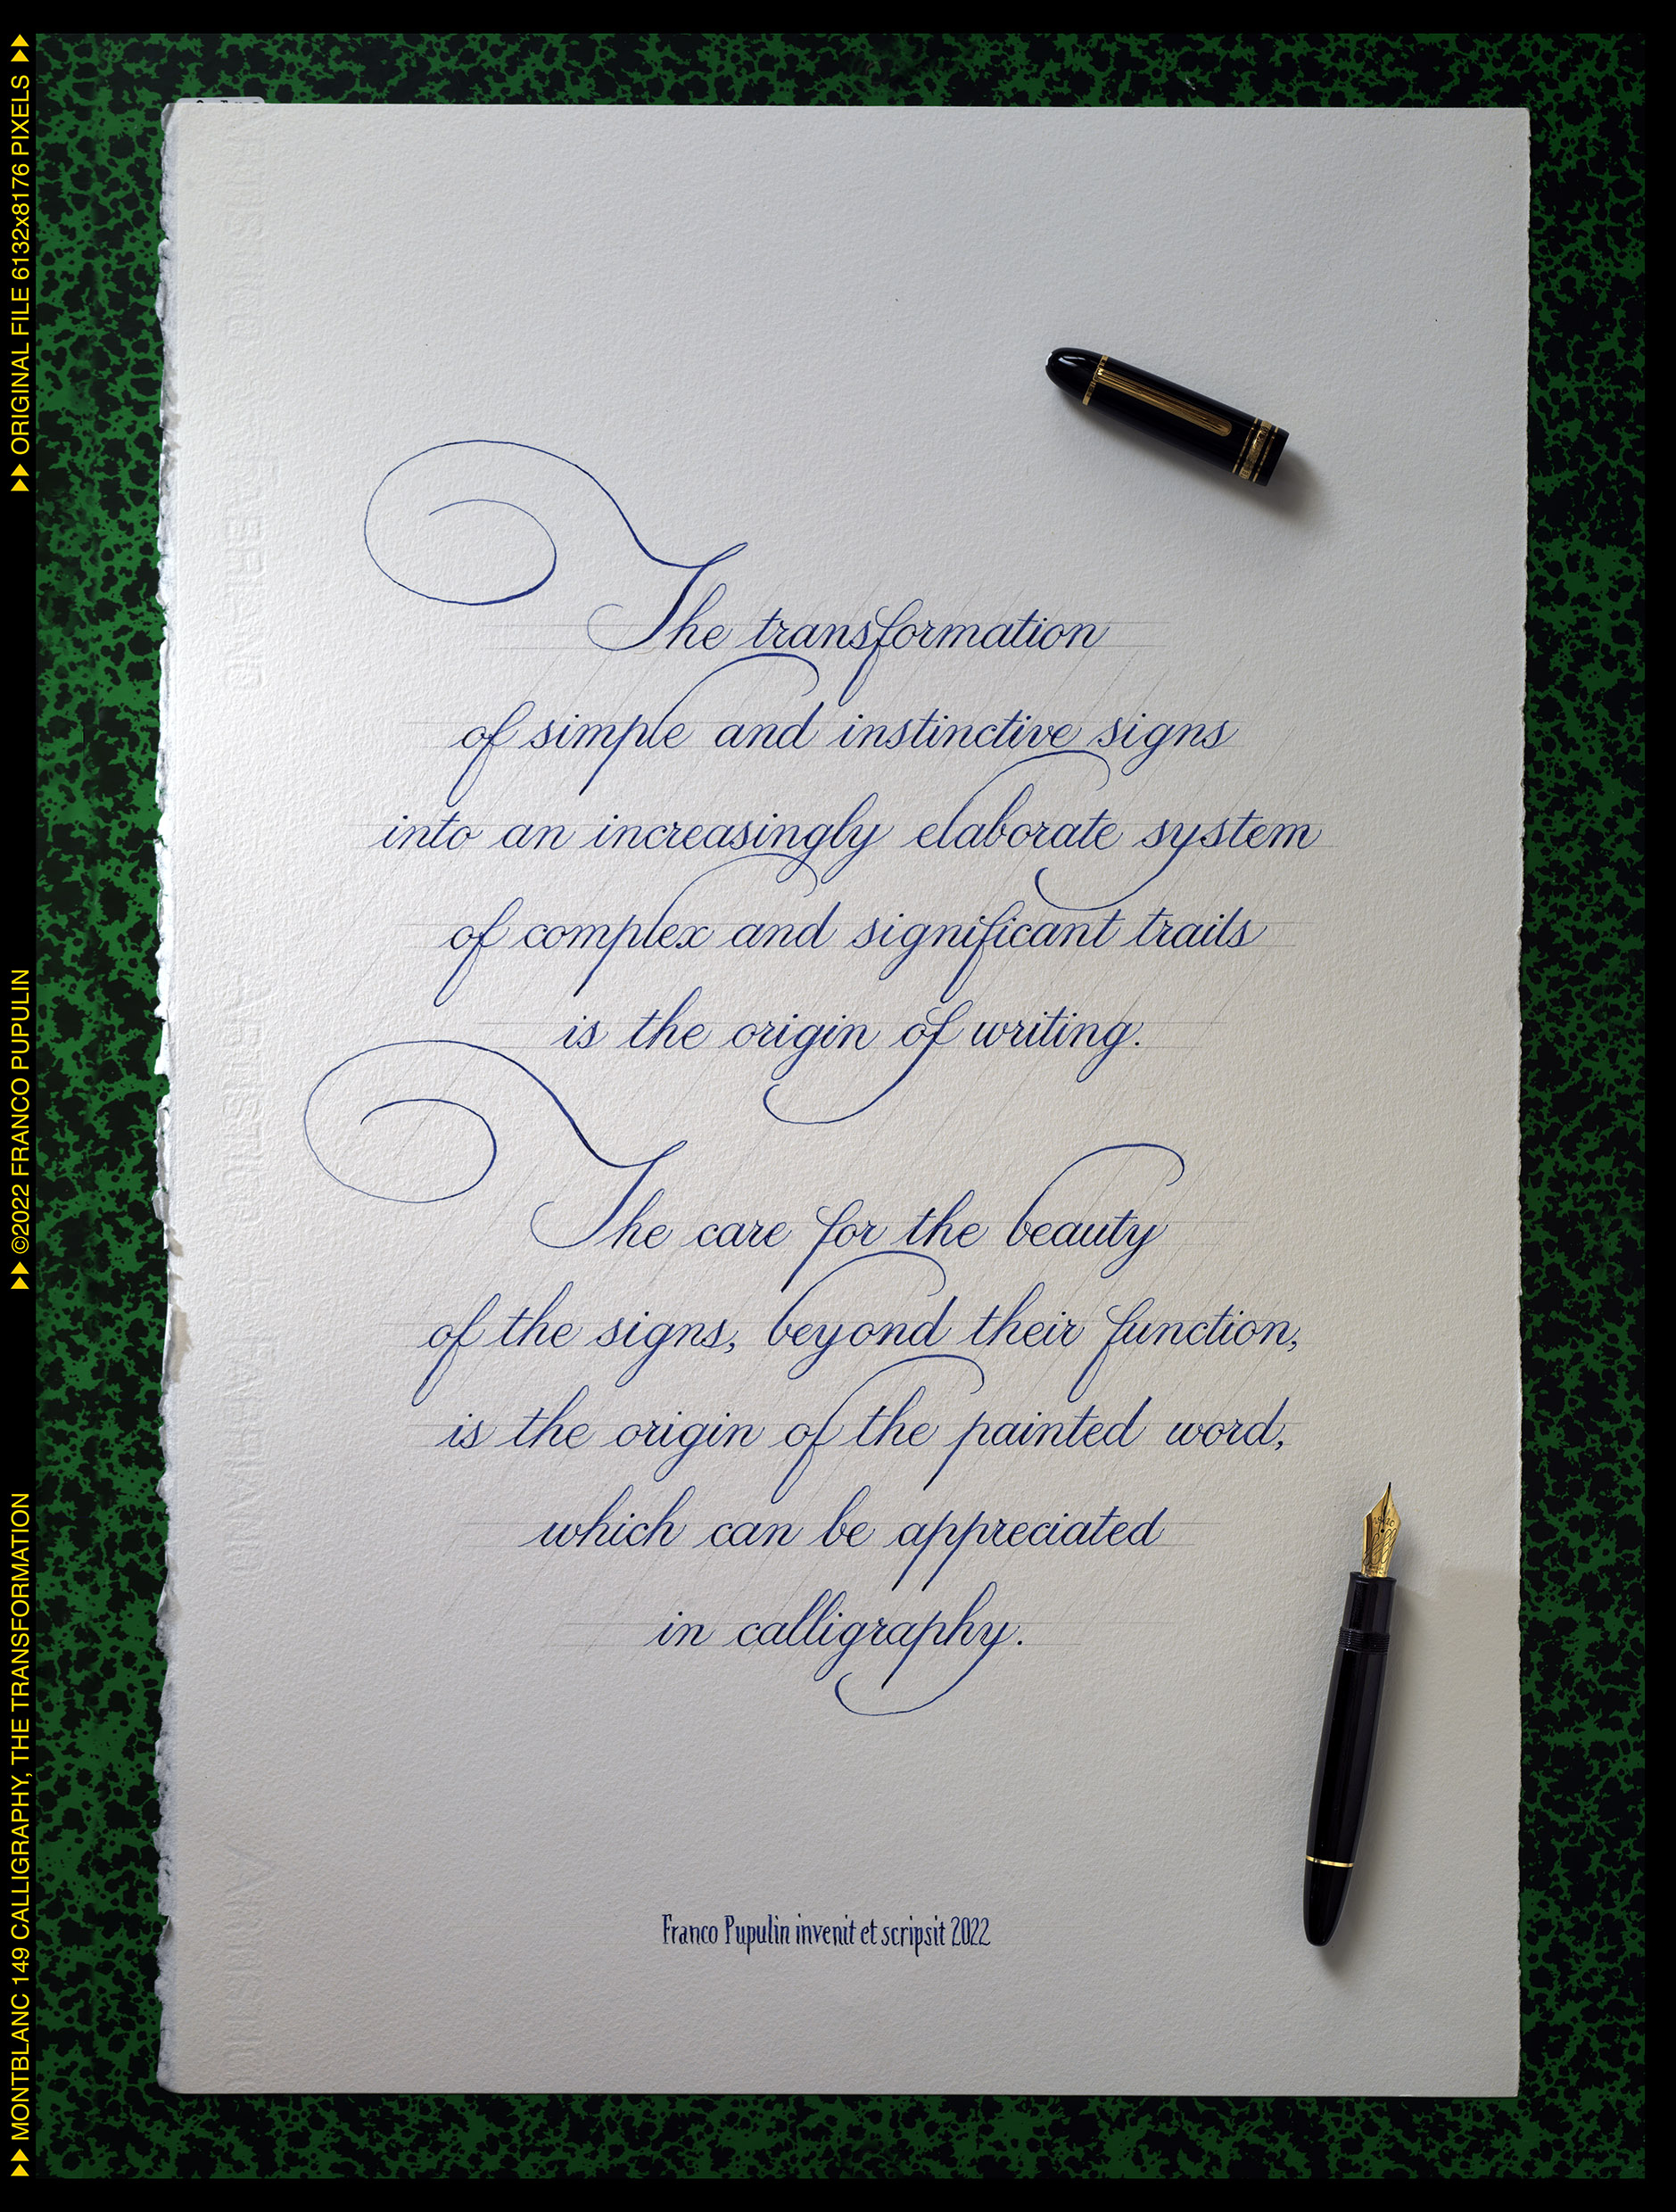 The transformation
of simple and instinctive signs
into an increasingly elaborate system
of complex and significant traits
is the origin of writing.
The care for the beauty
of the signs, beyond their function,
is the origin of the painted word,
which can be appreciated
in calligraphy.
Franco Pupulin invenit et scripsit 2022
MONTBLANC 149 CALLIGRAPHY, THE TRANSFORMATION
©2022 FRANCO PUPULIN
ORIGINAL FILE 6132x8176 PIXELS
ARTISTICO FABRIANO
ARTISTICO FABRIANO
ARTISTICO